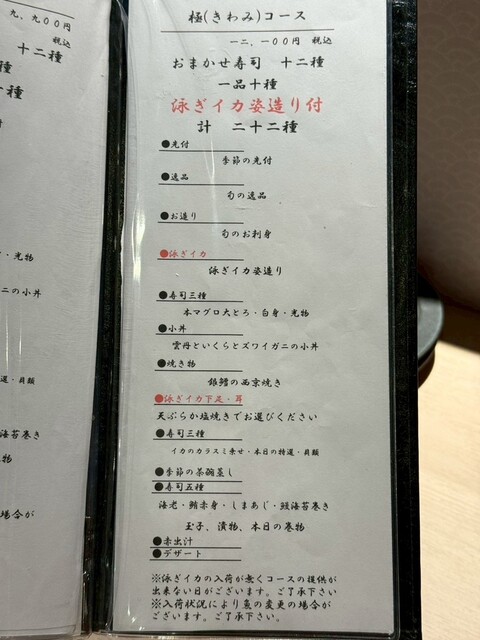 九、九00円
税込
十二種
極(きわみ)コース
一二、一00円 税込
おまかせ寿司 十二種
一品十種
泳ぎイカ姿造り付
計 二十二種
●先付
季節の先付
●逸品
旬の逸品
●お造り
旬のお刺身
●泳ぎイカ
泳ぎイカ姿造り
●寿司三種
本マグロ大とろ・白身・光物
●小丼
雲丹といくらとズワイガニの小丼
●焼き物
銀鱈の西京焼き
●泳ぎイカ下足・耳
天ぷらか塩焼きでお選びください
●寿司三種
イカのカラスミ乗せ・本日の特選・貝類
●季節の茶碗蒸し
●寿司五種
海老・鮪赤身・しまあじ・鰻海苔巻き
玉子、漬物、本日の巻物
●赤出汁
●デザート
※泳ぎイカの入荷が無くコースの提供が
出来ない日がございます。ご了承下さい
※入荷状況により魚の変更の場合が
ございます。ご了承下さい。